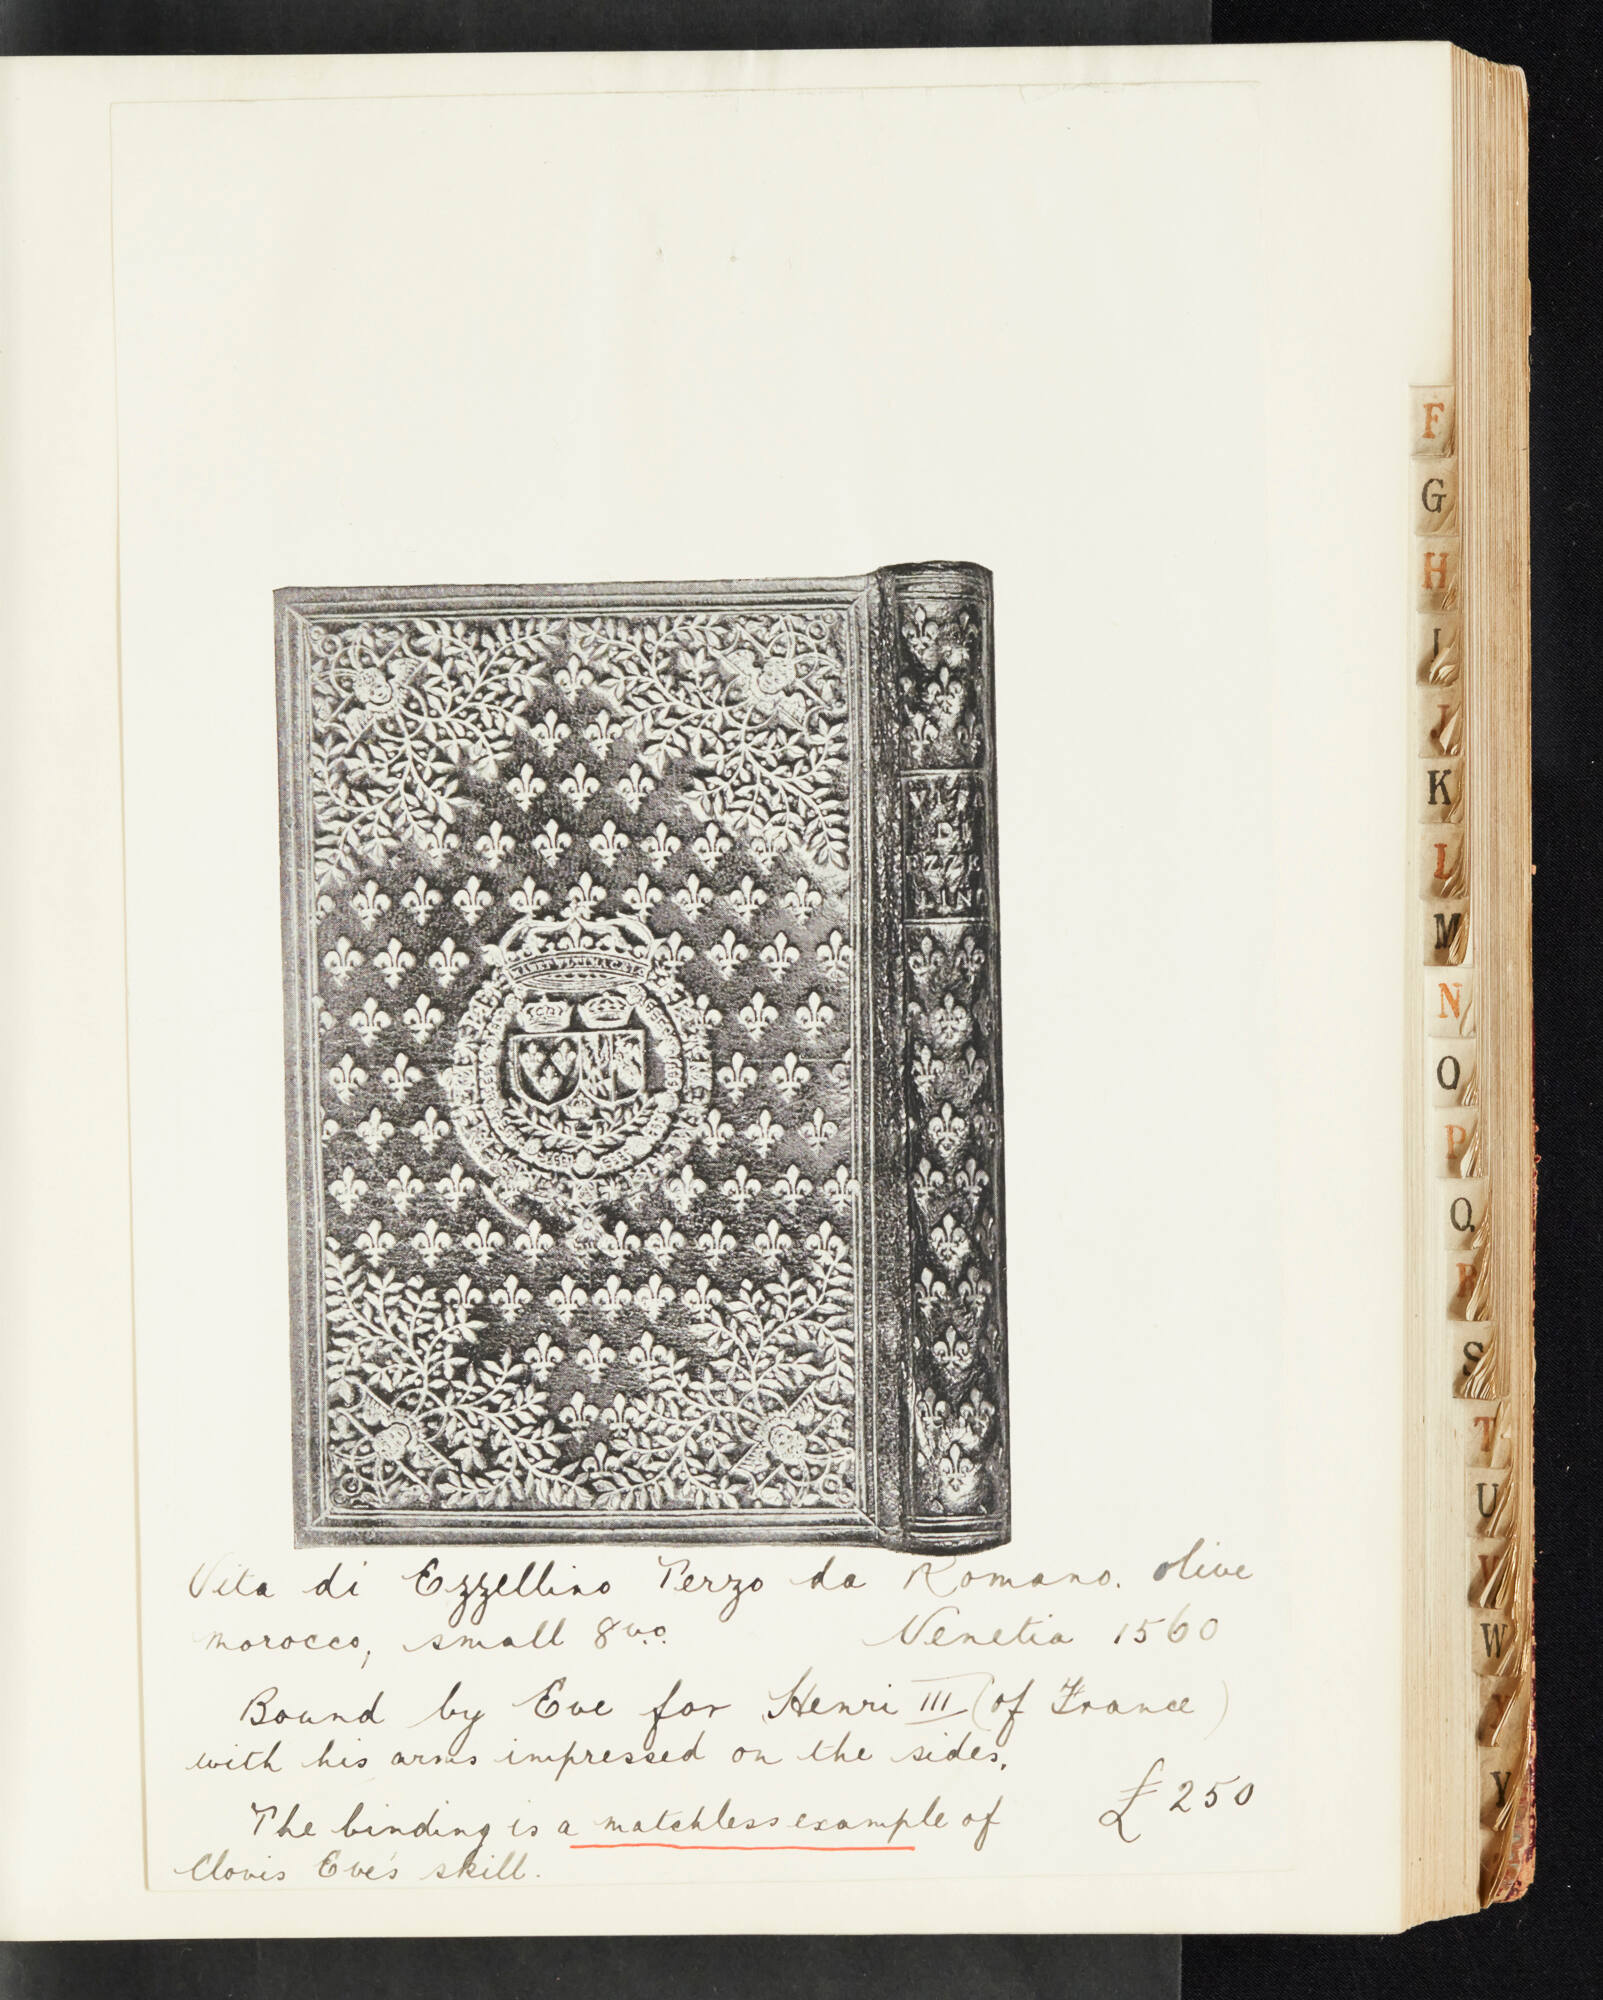 MANET VLTIMA CAELO
VITA
DI
EZZE
LIN
Vita di Ezzellino Terzo da Romano. olive
morocco, small 8vo. Venetia 1560
Bound by Eve for Henri III (of France)
with his arms impressed on the sides.
The binding is a matchless example of £250
Clovis Eve's skill.
F
G
H
I
J
K
L
M
N
O
P
Q
R
S
T
U
V
W
X
Y